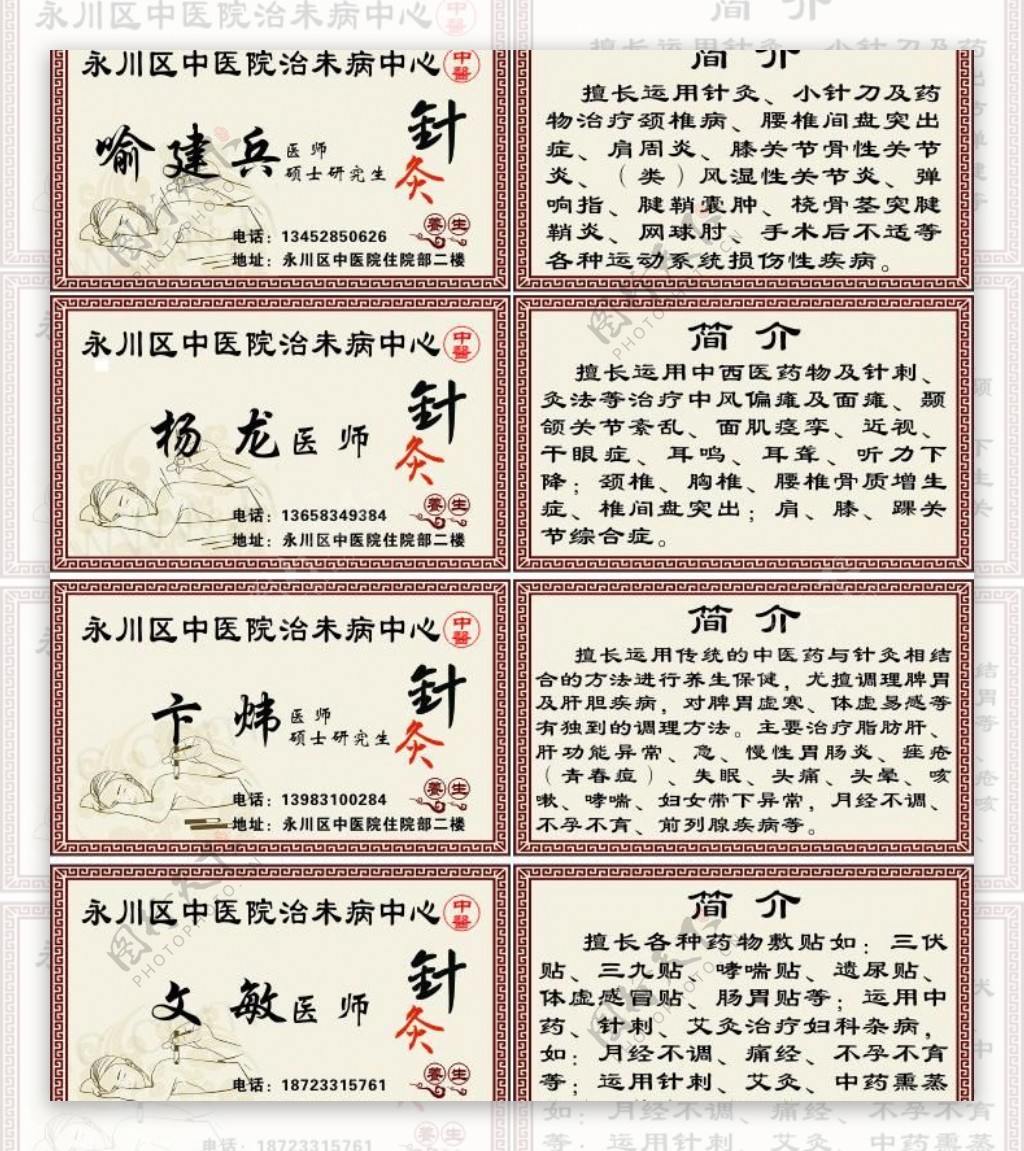 永川区中医院治未病中心 中醫
喻建兵 医师
硕士研究生
針
灸
養生
电话：13452850626
地址：永川区中医院住院部二楼
简介
擅长运用针灸、小针刀及药
物治疗颈椎病、腰椎间盘突出
症、肩周炎、膝关节骨性关节
炎、（类）风湿性关节炎、弹
响指、腱鞘囊肿、桡骨茎突腱
鞘炎、网球肘、手术后不适等
各种运动系统损伤性疾病。
永川区中医院治未病中心 中醫
杨龙 医师
針
灸
養生
电话：13658349384
地址：永川区中医院住院部二楼
简介
擅长运用中西医药物及针刺、
灸法等治疗中风偏瘫及面瘫、颞
颌关节紊乱、面肌痉挛、近视、
干眼症、耳鸣、耳聋、听力下
降；颈椎、胸椎、腰椎骨质增生
症、椎间盘突出；肩、膝、踝关
节综合症。
永川区中医院治未病中心 中醫
卞炜 医师
硕士研究生
針
灸
養生
电话：13983100284
地址：永川区中医院住院部二楼
简介
擅长运用传统的中医药与针灸相结
合的方法进行养生保健，尤擅调理脾胃
及肝胆疾病，对脾胃虚寒、体虚易感等
有独到的调理方法。主要治疗脂肪肝、
肝功能异常、急、慢性胃肠炎、痤疮
（青春痘）、失眠、头痛、头晕、咳
嗽、哮喘、妇女带下异常，月经不调、
不孕不育、前列腺疾病等。
永川区中医院治未病中心 中醫
文敏 医师
針
灸
養生
电话：18723315761
简介
擅长各种药物敷贴如：三伏
贴、三九贴、哮喘贴、遗尿贴、
体虚感冒贴、肠胃贴等；运用中
药、针刺、艾灸治疗妇科杂病，
如：月经不调、痛经、不孕不育
等；运用针刺、艾灸、中药熏蒸